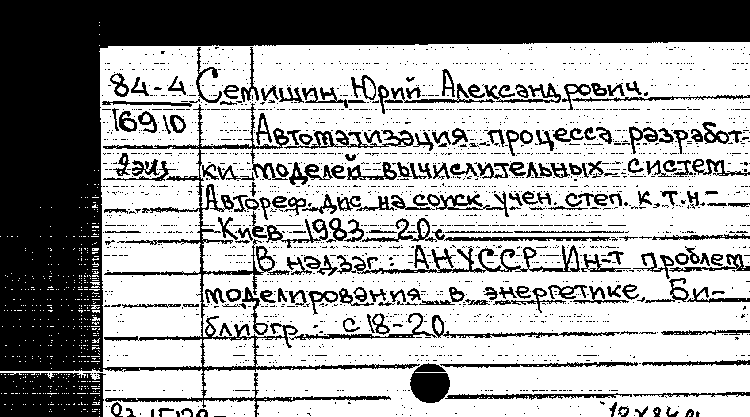 84-4 Семишин, Юрий Александрович.
16910 Автоматизация процесса разработ-
2 экз ки моделей вычислительных систем :
Автореф. дис. на соиск. учен. степ. к.т.н.-
-Киев, 1983.- 20 с
В надзаг.: АН УССР. Ин-т проблем
моделирования в энергетике. Би-
блиогр.: с 18-20.